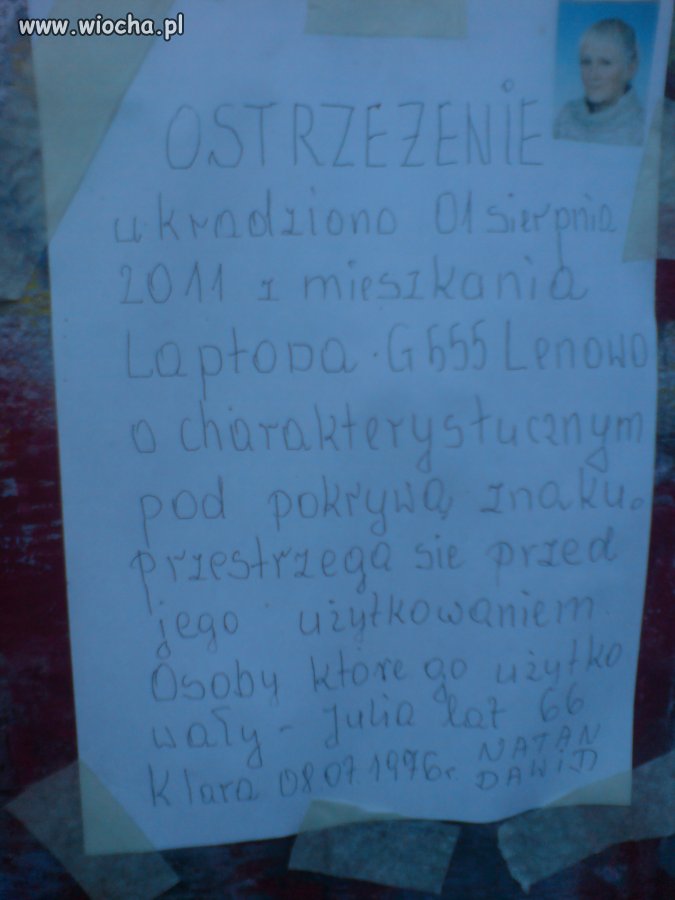 www.wiocha.pl
OSTRZEŻENIE
ukradziono 01 sierpnia
2011 z mieszkania
Lapłopa. G555 Lenowo
o charakterystucznym
pod pokrywą znaku.
przestrzega sie przed
jego użytkowaniem.
Osoby które go użytko
wały - Julia lat 66
Klara 08.07.1976r. NATAN
DAWiD